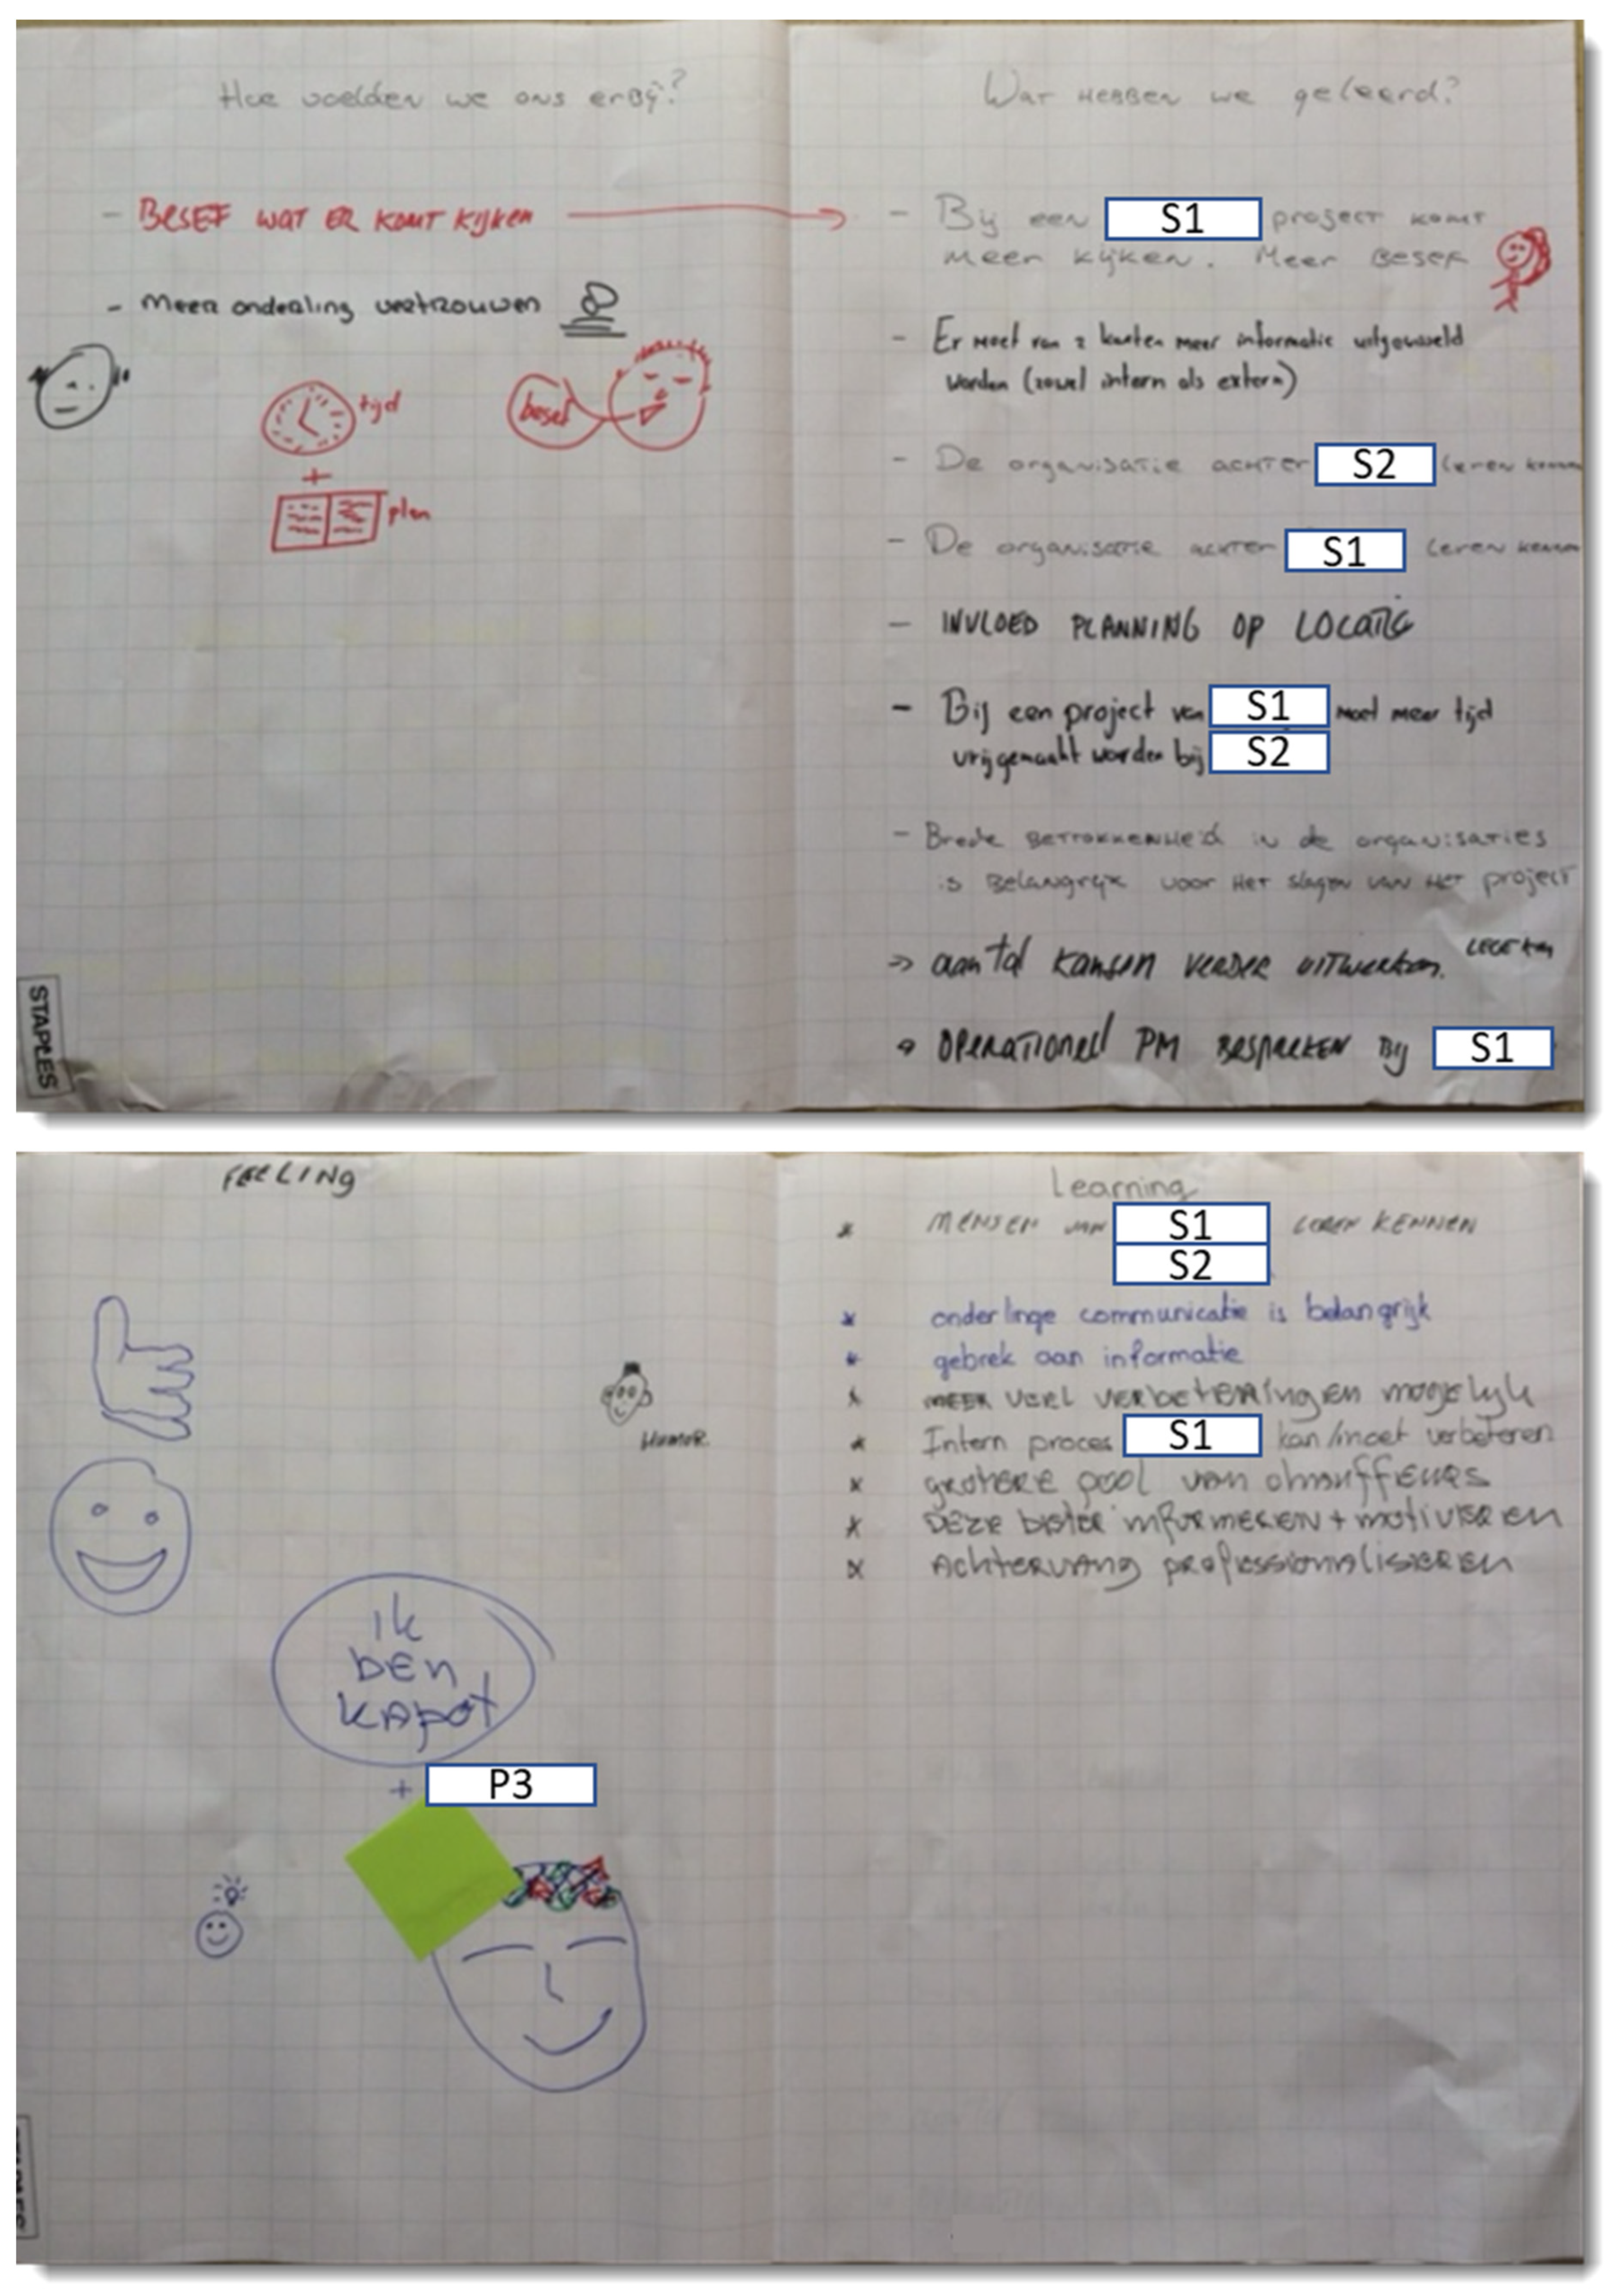 Hoe voelden we ons erbij?
- BESEF WAT ER KOMT KIJKEN
- Meer onderling vertrouwen
tijd
+
plan
besef
STAPLES
Wat hebben we geleerd?
- Bij een S1 project komt
meer kijken. Meer besef
- Er moet van 2 kanten meer informatie uitgewisseld
worden (zowel intern als extern)
- De organisatie achter S2 leren kennen
- De organisatie achter S1 leren kennen
- INVLOED PLANNING OP LOCATIE
- Bij een project van S1 moet meer tijd
vrijgemaakt worden bij S2
- Brede betrokkenheid in de organisaties
is belangrijk voor het slagen van het project
=> aantal kansen verder uitwerken.
OPERATIONEEL PM BESPREKEN BIJ S1
FEELING
HUMOR
ik
ben
kapot
+ P3
Learning
* MENSEN VAN S1 LEREN KENNEN
S2
* onderlinge communicatie is belangrijk
* gebrek aan informatie
* MEER VEEL verbeteringen mogelijk
* Intern proces S1 kan/moet verbeteren
* grotere pool van chauffeurs
* DEZE beter informeren + motiveren
* Achtervang professionaliseren